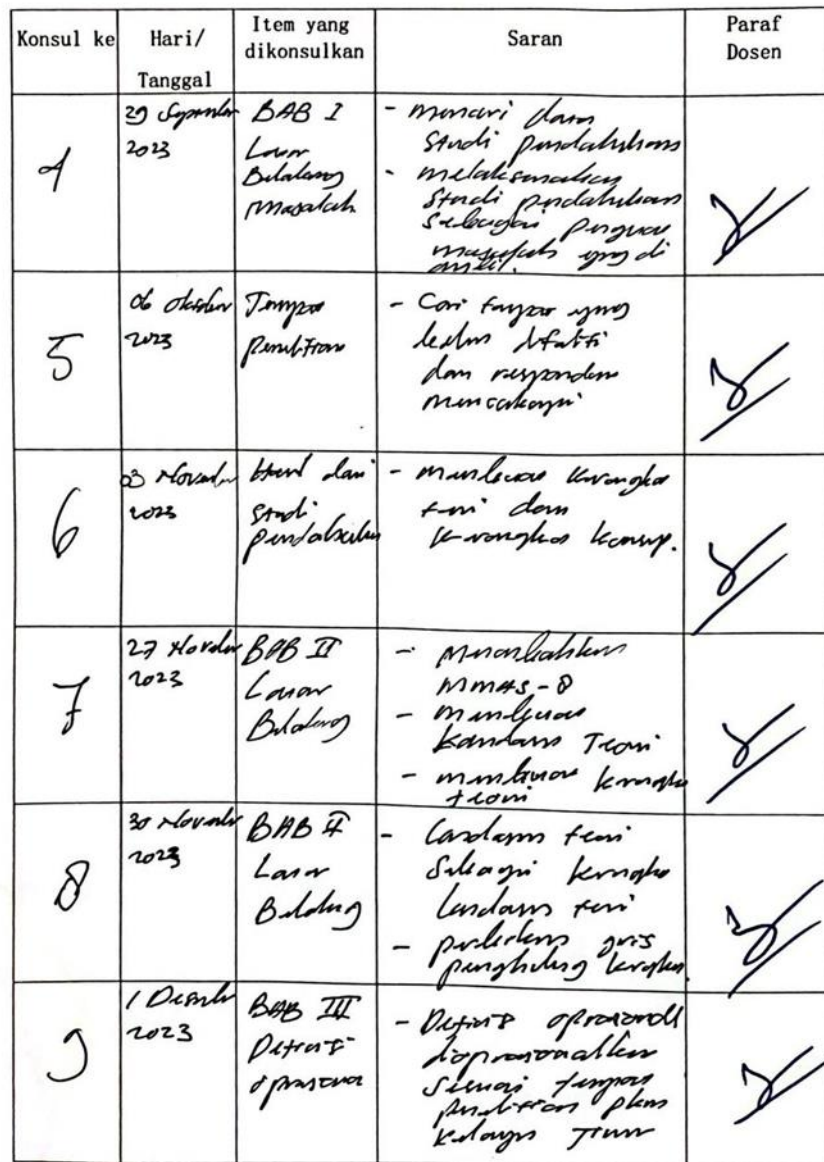 Konsul ke
Hari/
Tanggal
Item yang
dikonsulkan
Saran
Paraf
Dosen
4
29 September
2023
BAB I
Latar
Belakang
Masalah
- mencari dasar
Studi pendahuluan
- melaksanakan
Studi pendahuluan
Sebagai
masalah yang di
5
06 Oktober
2023
Tempat
Penelitian
- Cari tempat yang
dan responden
mencakupi
6
03 November
2023
Hasil dari
Studi
pendahuluan
- membuat kerangka
teori dan
kerangka konsep.
7
27 November
2023
BAB II
Latar
Belakang
- menambahkan
MMAS-8
- membuat
Teori
- membuat kerangka
teori
8
30 November
2023
BAB II
Latar
Belakang
- Landasan teori
Sebagai kerangka
landasan teori
- perbedaan garis
penghubung kerangka
9
1 Desember
2023
BAB III
Definisi
operasional
- Definisi operasional
dioperasionalkan
Sesuai tempat
penelitian